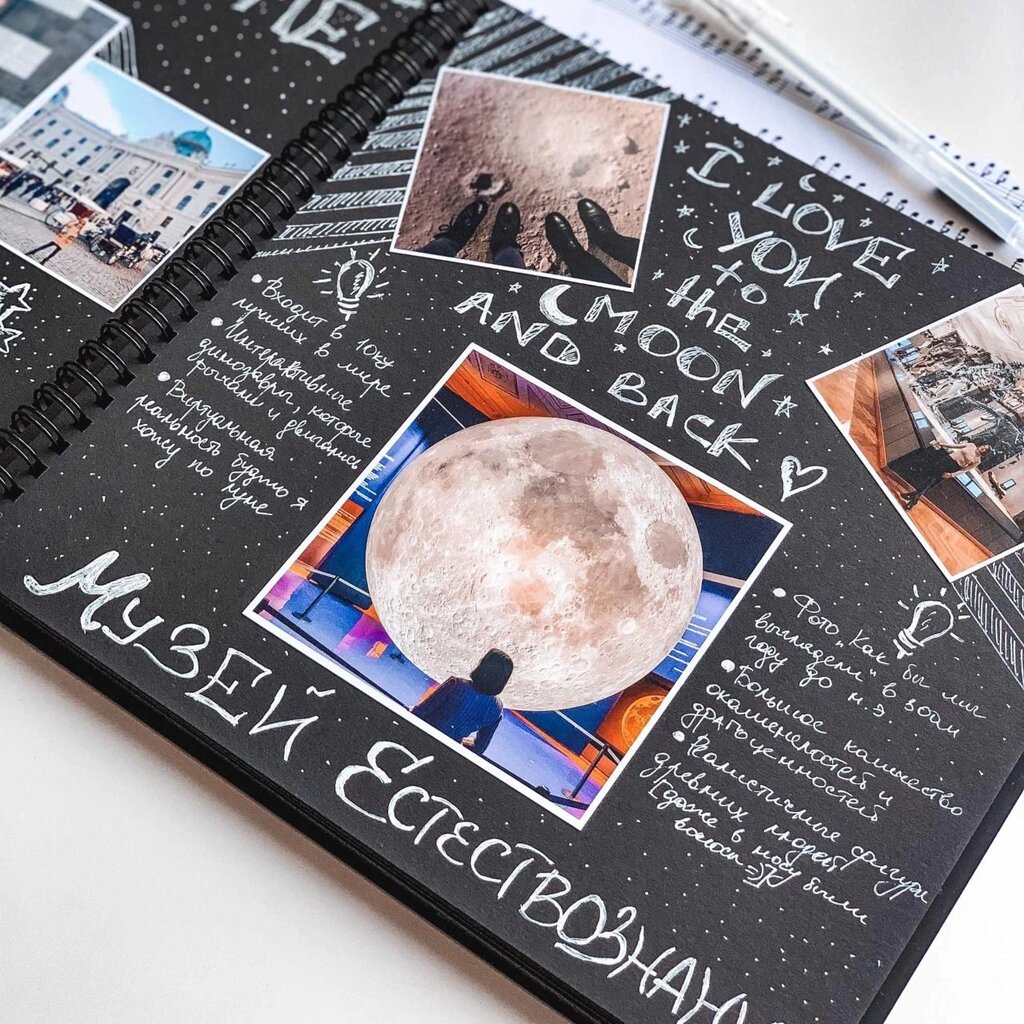 I LOVE
YOU
to
the
MOON
AND BACK
• Входит в 10ку
лучших в мире
• Интерактивные
динозавры, которые
рычали и двигались
• Виртуальная
реальность будто я
хожу по луне
• Фото „Как бы мы
выглядели" в 300м
году до н.э.
• Большое количество
окаменелостей и
драгоценностей
• Реалистичные фигуры
древних людей
(даже в носу были
волосы =)
МУЗЕЙ ЕСТЕСТВОЗНАН